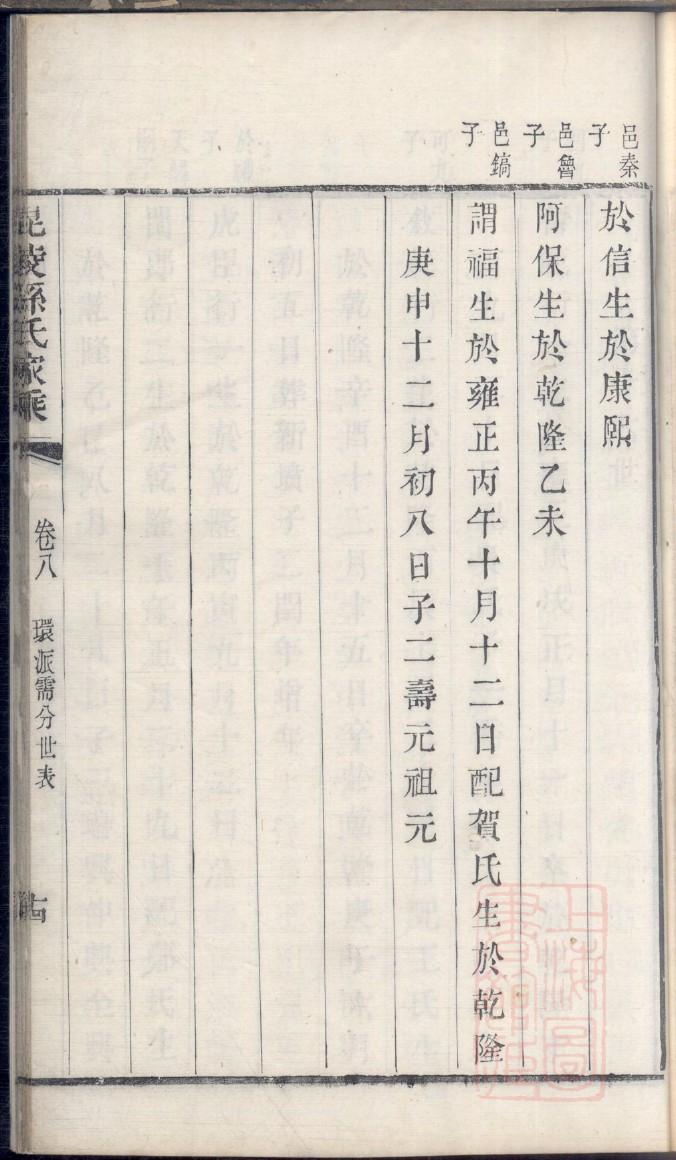 邑秦子
於信生於康熙
邑魯子
阿保生於乾隆乙未
邑鎬子
謂福生於雍正丙午十月十二日配賀氏生於乾隆
庚申十二月初八日子二壽元祖元
毘陵孫氏家乘
卷八
環派需分世表